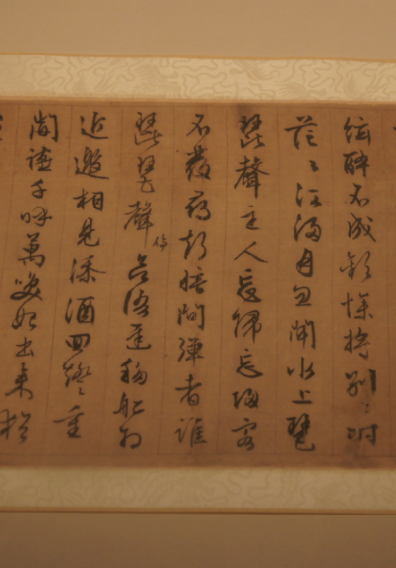 絃醉不成歡慘將別々時
茫々江浸月忽聞水上琵
琶聲主人忘歸忘客
不發尋聲暗問彈者誰
琵琶聲停欲語遲移船相
近邀相見添酒回燈重
開宴千呼萬喚始出來猶